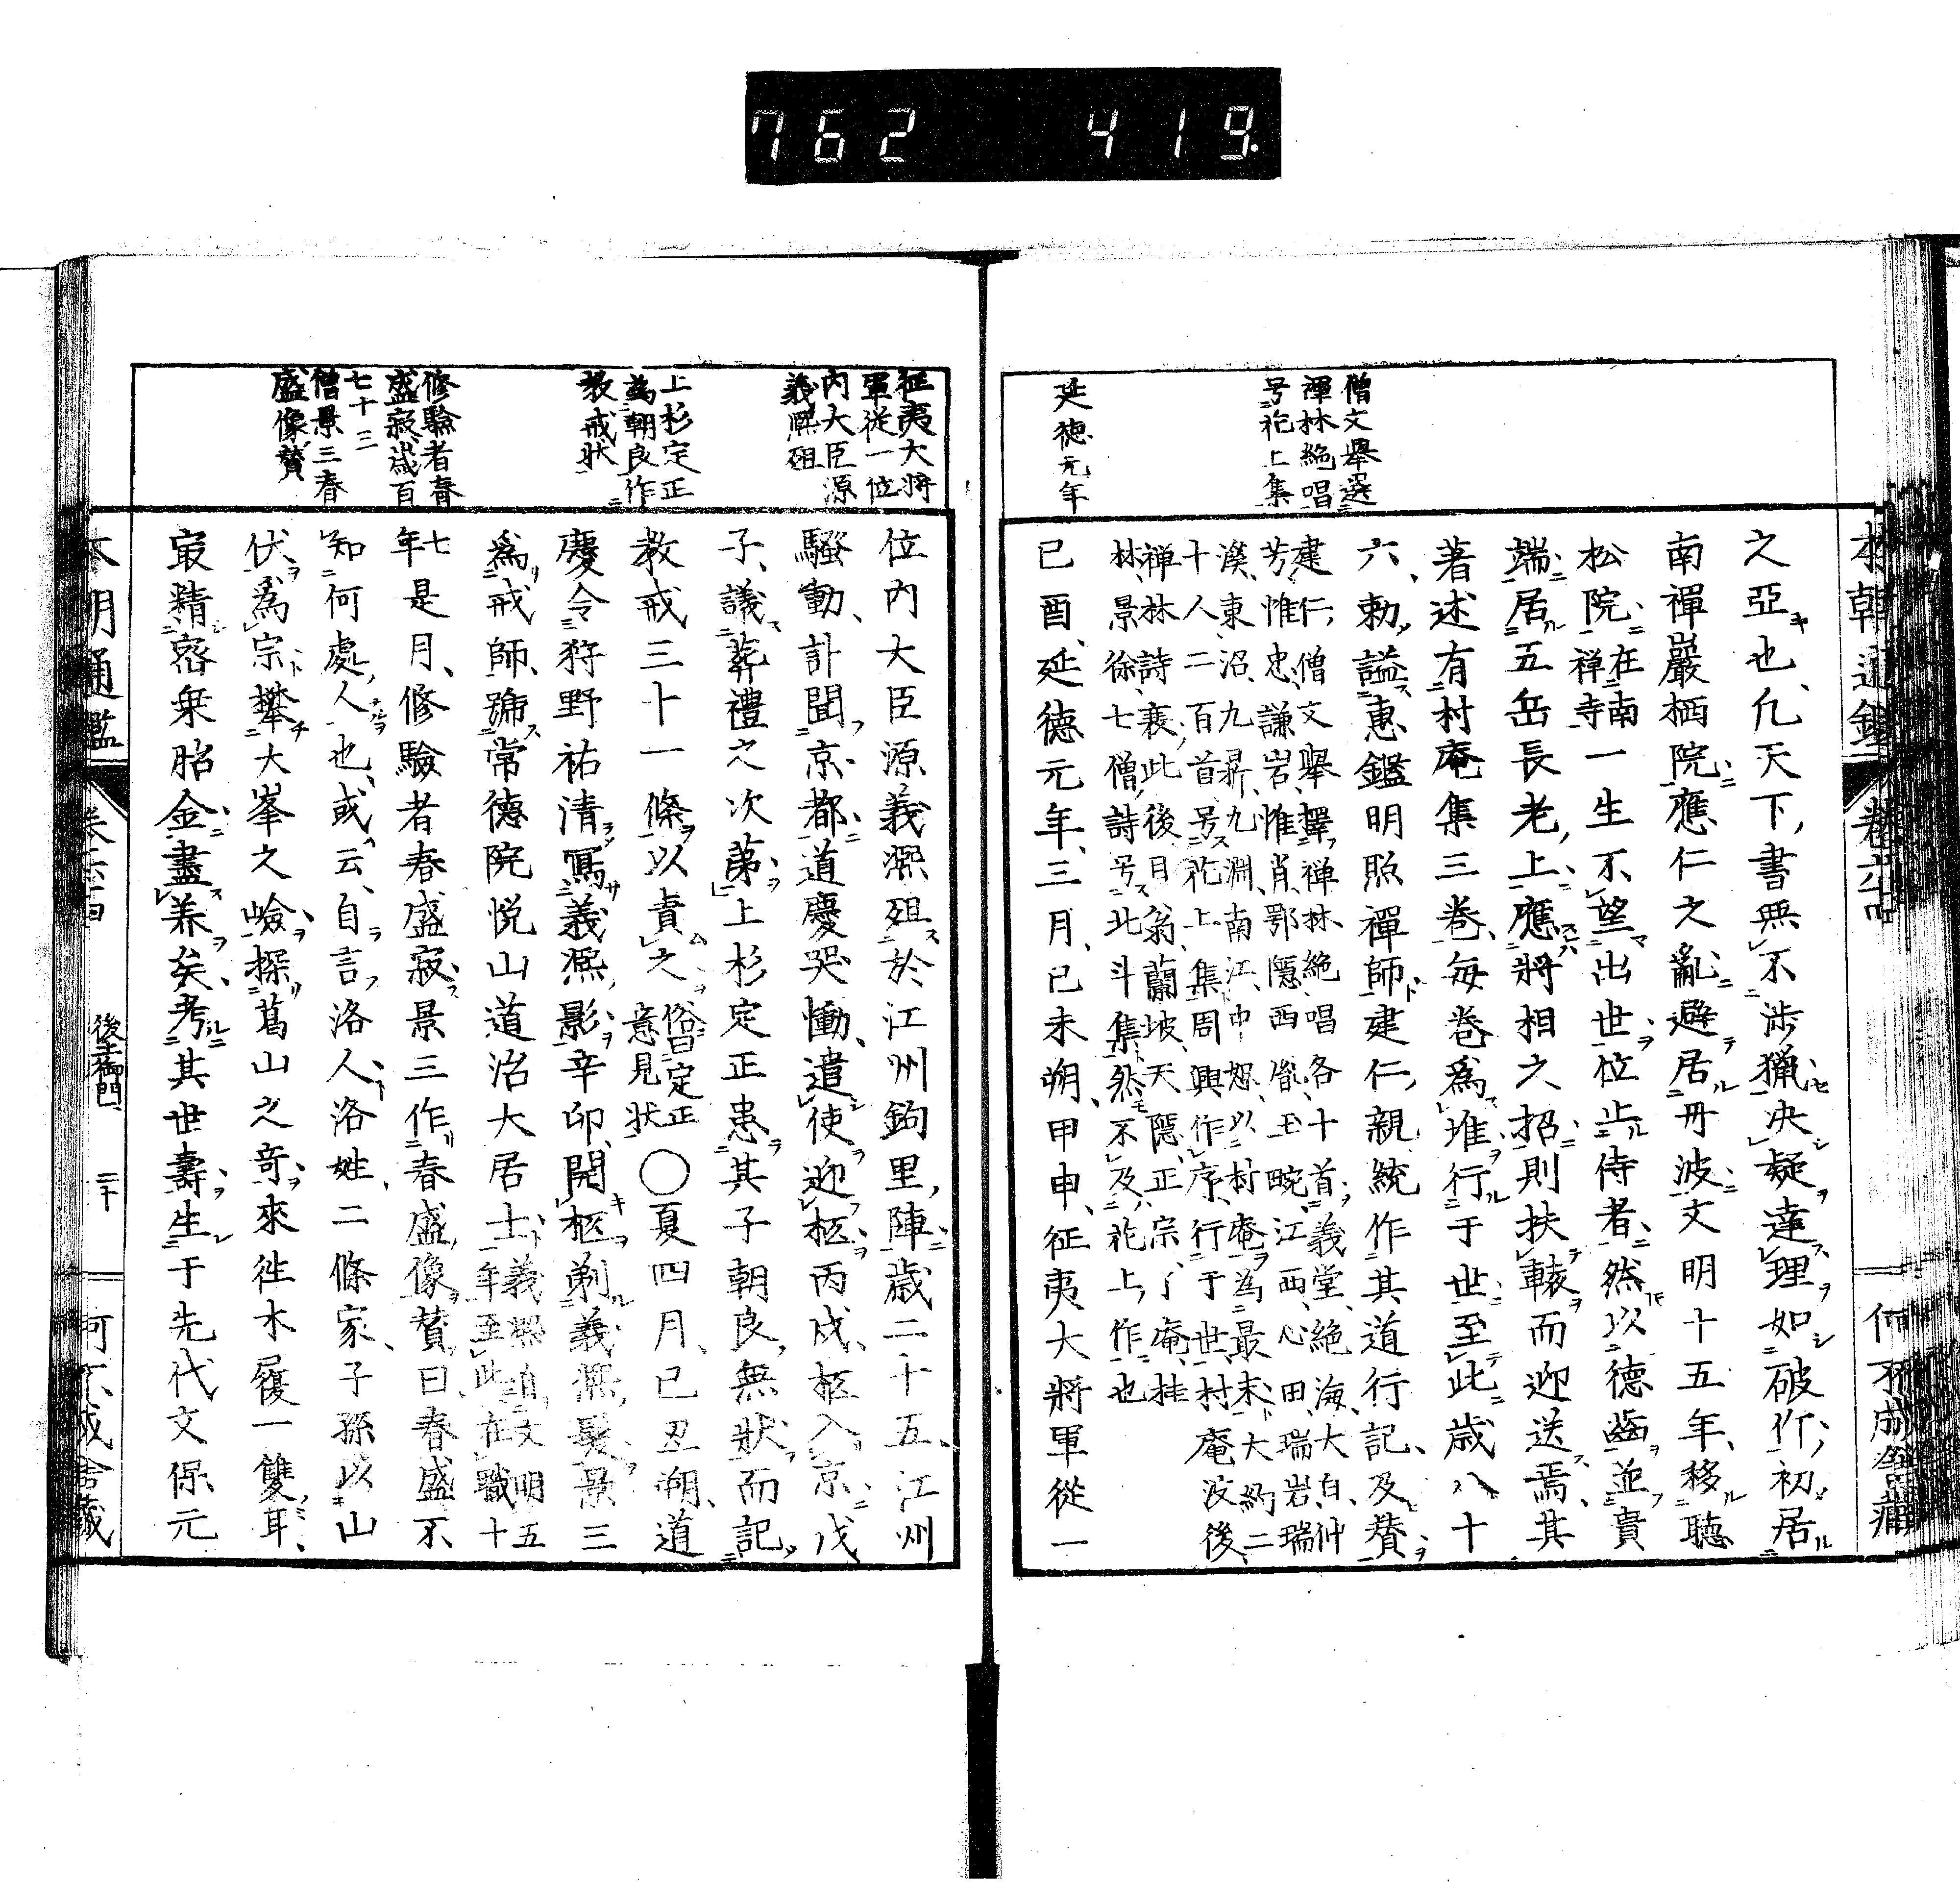 762 419.
本朝通鑑 卷六十四 何不成舍藏
僧文擧選
禪林絶唱
号花上集
延德元年
之亞也、凡天下書無不涉獵決疑達理如破竹、初居
南禪巖栖院應仁之亂避居丹波文明十五年、移聽
松院在南禅寺一生不望出世位止侍者然以德齒並貴
端居五岳長老上應將相之招則扶轅而迎送焉其
著述有村庵集三卷每卷爲堆行于世至此歲八十
六、勅謚惠鑑明照禪師建仁親統作其道行記及贊
建仁僧文擧擇禅林絶唱各十首義堂絶海大白仲
芳惟忠謙岩惟肖鄂隱西胤玉畹江西心田瑞岩瑞
溪東沼九鼎九淵南江中恕以村庵為最末大約二
十人二百首号花上集周興作序行于世村庵沒後
禅林詩衰此後日翁蘭坡天隱正宗了庵桂
林景徐七僧詩号北斗集然不及花上作也
己酉延德元年三月己未朔甲申征夷大將軍從一
征夷大將
軍從一位
內大臣源
義熙殂
上杉定正
為朝良作
教戒状
修驗者春
盛寂歲百
七十三
僧景三春
盛像贊
位內大臣源義熙殂於江州鉤里陣歲二十五、江州
騷動、訃聞京都道慶哭慟遣使迎柩丙戌柩入京戊
子、議葬禮之次第上杉定正患其子朝良無狀而記
教戒三十一條以責之俗曰定正意見狀〇夏四月己丑朔道
慶令狩野祐清寫義熙影辛卯開柩剃義熙髮景三
爲戒師號常德院悦山道治大居士義熙自文明五年至此在職十
七年是月、修驗者春盛寂景三作春盛像贊曰春盛不
知何處人也或云自言洛人洛姓二條家子孫以山
伏爲宗攀大峯之嶮探葛山之奇來往木履一雙耳
最精密乗胎金盡養矣考其世壽生于先代文保元
本朝通鑑 卷六十四 後土御門 二十 何不成舍藏